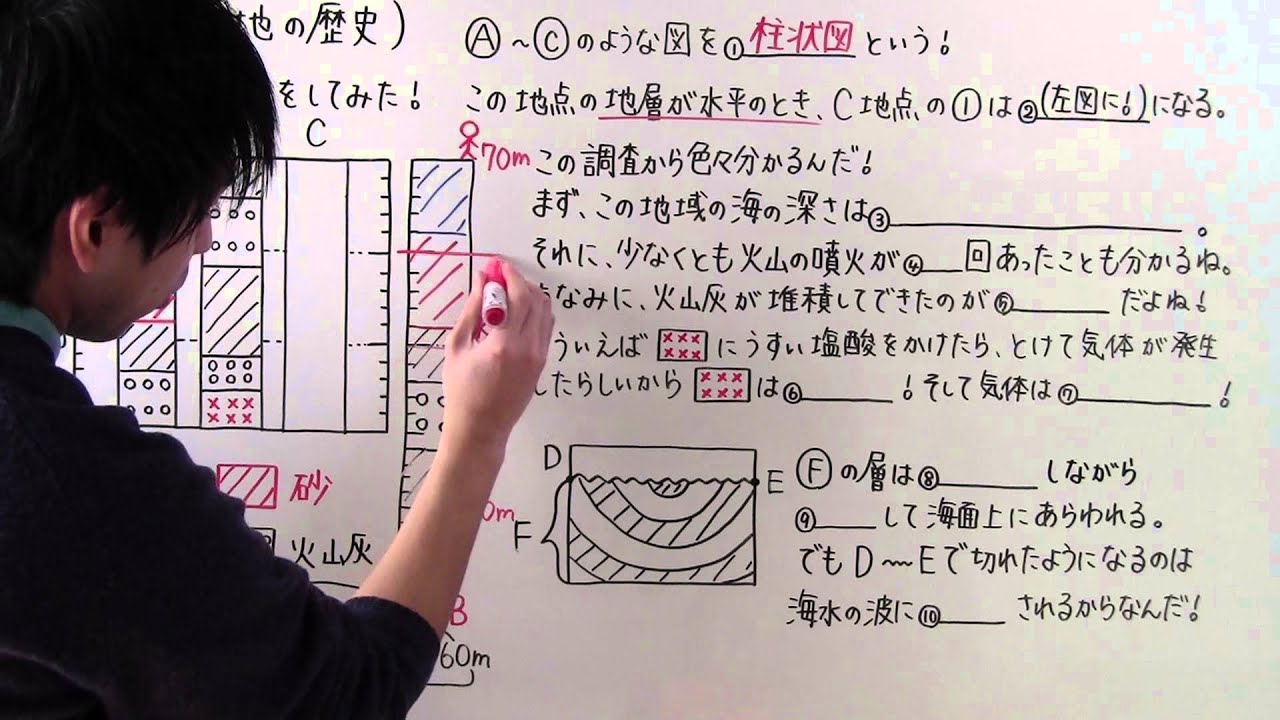 地の歴史)
をしてみた!
C
Ⓐ~Ⓒのような図を①柱状図という!
この地点の地層が水平のとき、C地点の①は②(左図に!)になる。
70m この調査から色々分かるんだ!
まず、この地域の海の深さは③ 。
それに、少なくとも火山の噴火が④ 回あったことも分かるね。
なみに、火山灰が堆積してできたのが⑤ だよね!
ういえば にうすい塩酸をかけたら、とけて気体が発生
したらしいから は⑥ !そして気体は⑦ !
砂
火山灰
0m
B
60m
D
E
F
Ⓕの層は⑧ しながら
⑨ して海面上にあらわれる。
でもD〜Eで切れたようになるのは
海水の波に⑩ されるからなんだ!